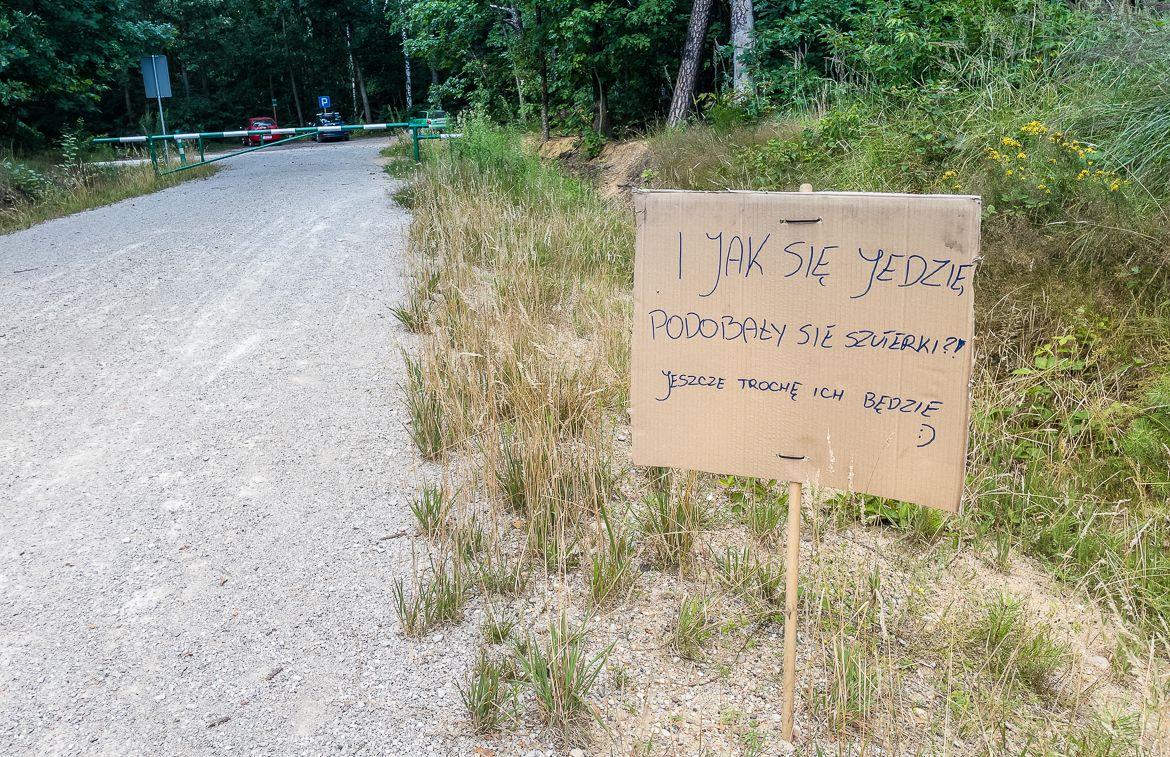 I JAK SIĘ JEDZIE,
PODOBAŁY SIĘ SZUTERKI?!
JESZCZE TROCHĘ ICH BĘDZIE
:)
P